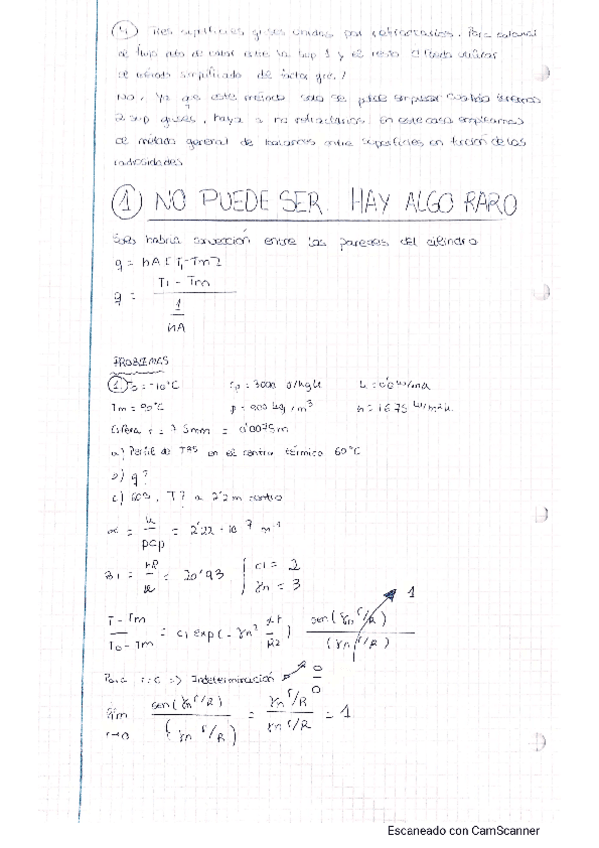 ④ Tres superficies grises unidas por refractarios. Para calcular
el flujo neto de calor entre la sup 1 y el resto ¿Puedo utilizar
el método simplificado de factor gris?
No, ya que este método solo se puede emplear cuando tenemos
2 sup grises, haya o no refractarios. En este caso empleamos
el método general de balances entre superficies en función de las
radiosidades
① NO PUEDE SER. HAY ALGO RARO
Solo habría convección entre las paredes del cilindro
q = hA [T1-Tm]
q = T1 - Tm / 1/hA
PROBLEMAS
① T0 = -10°C Cp = 3000 J/kgK k = 0'6 W/mK
Tm = 90°C ρ = 900 kg/m³ h = 1675 W/m²K
Esfera r = 7'5mm = 0'0075m
a) Perfil de Tas en el centro térmico 60°C
b) q?
c) T? a 2'2m centro
α = k/ρcp = 2'22·10⁻⁷
Bi = hR/k = 20'93 { c1 = 2 γn = 3
T - Tm / T0 - Tm = c1 exp(-γn² αt/R²) sen(γn r/R) / (γn r/R) → 1
Para r=0 => Indeterminación 0/0
lim r→0 sen(γn r/R) / (γn r/R) = γn r/R / γn r/R = 1
Escaneado con CamScanner